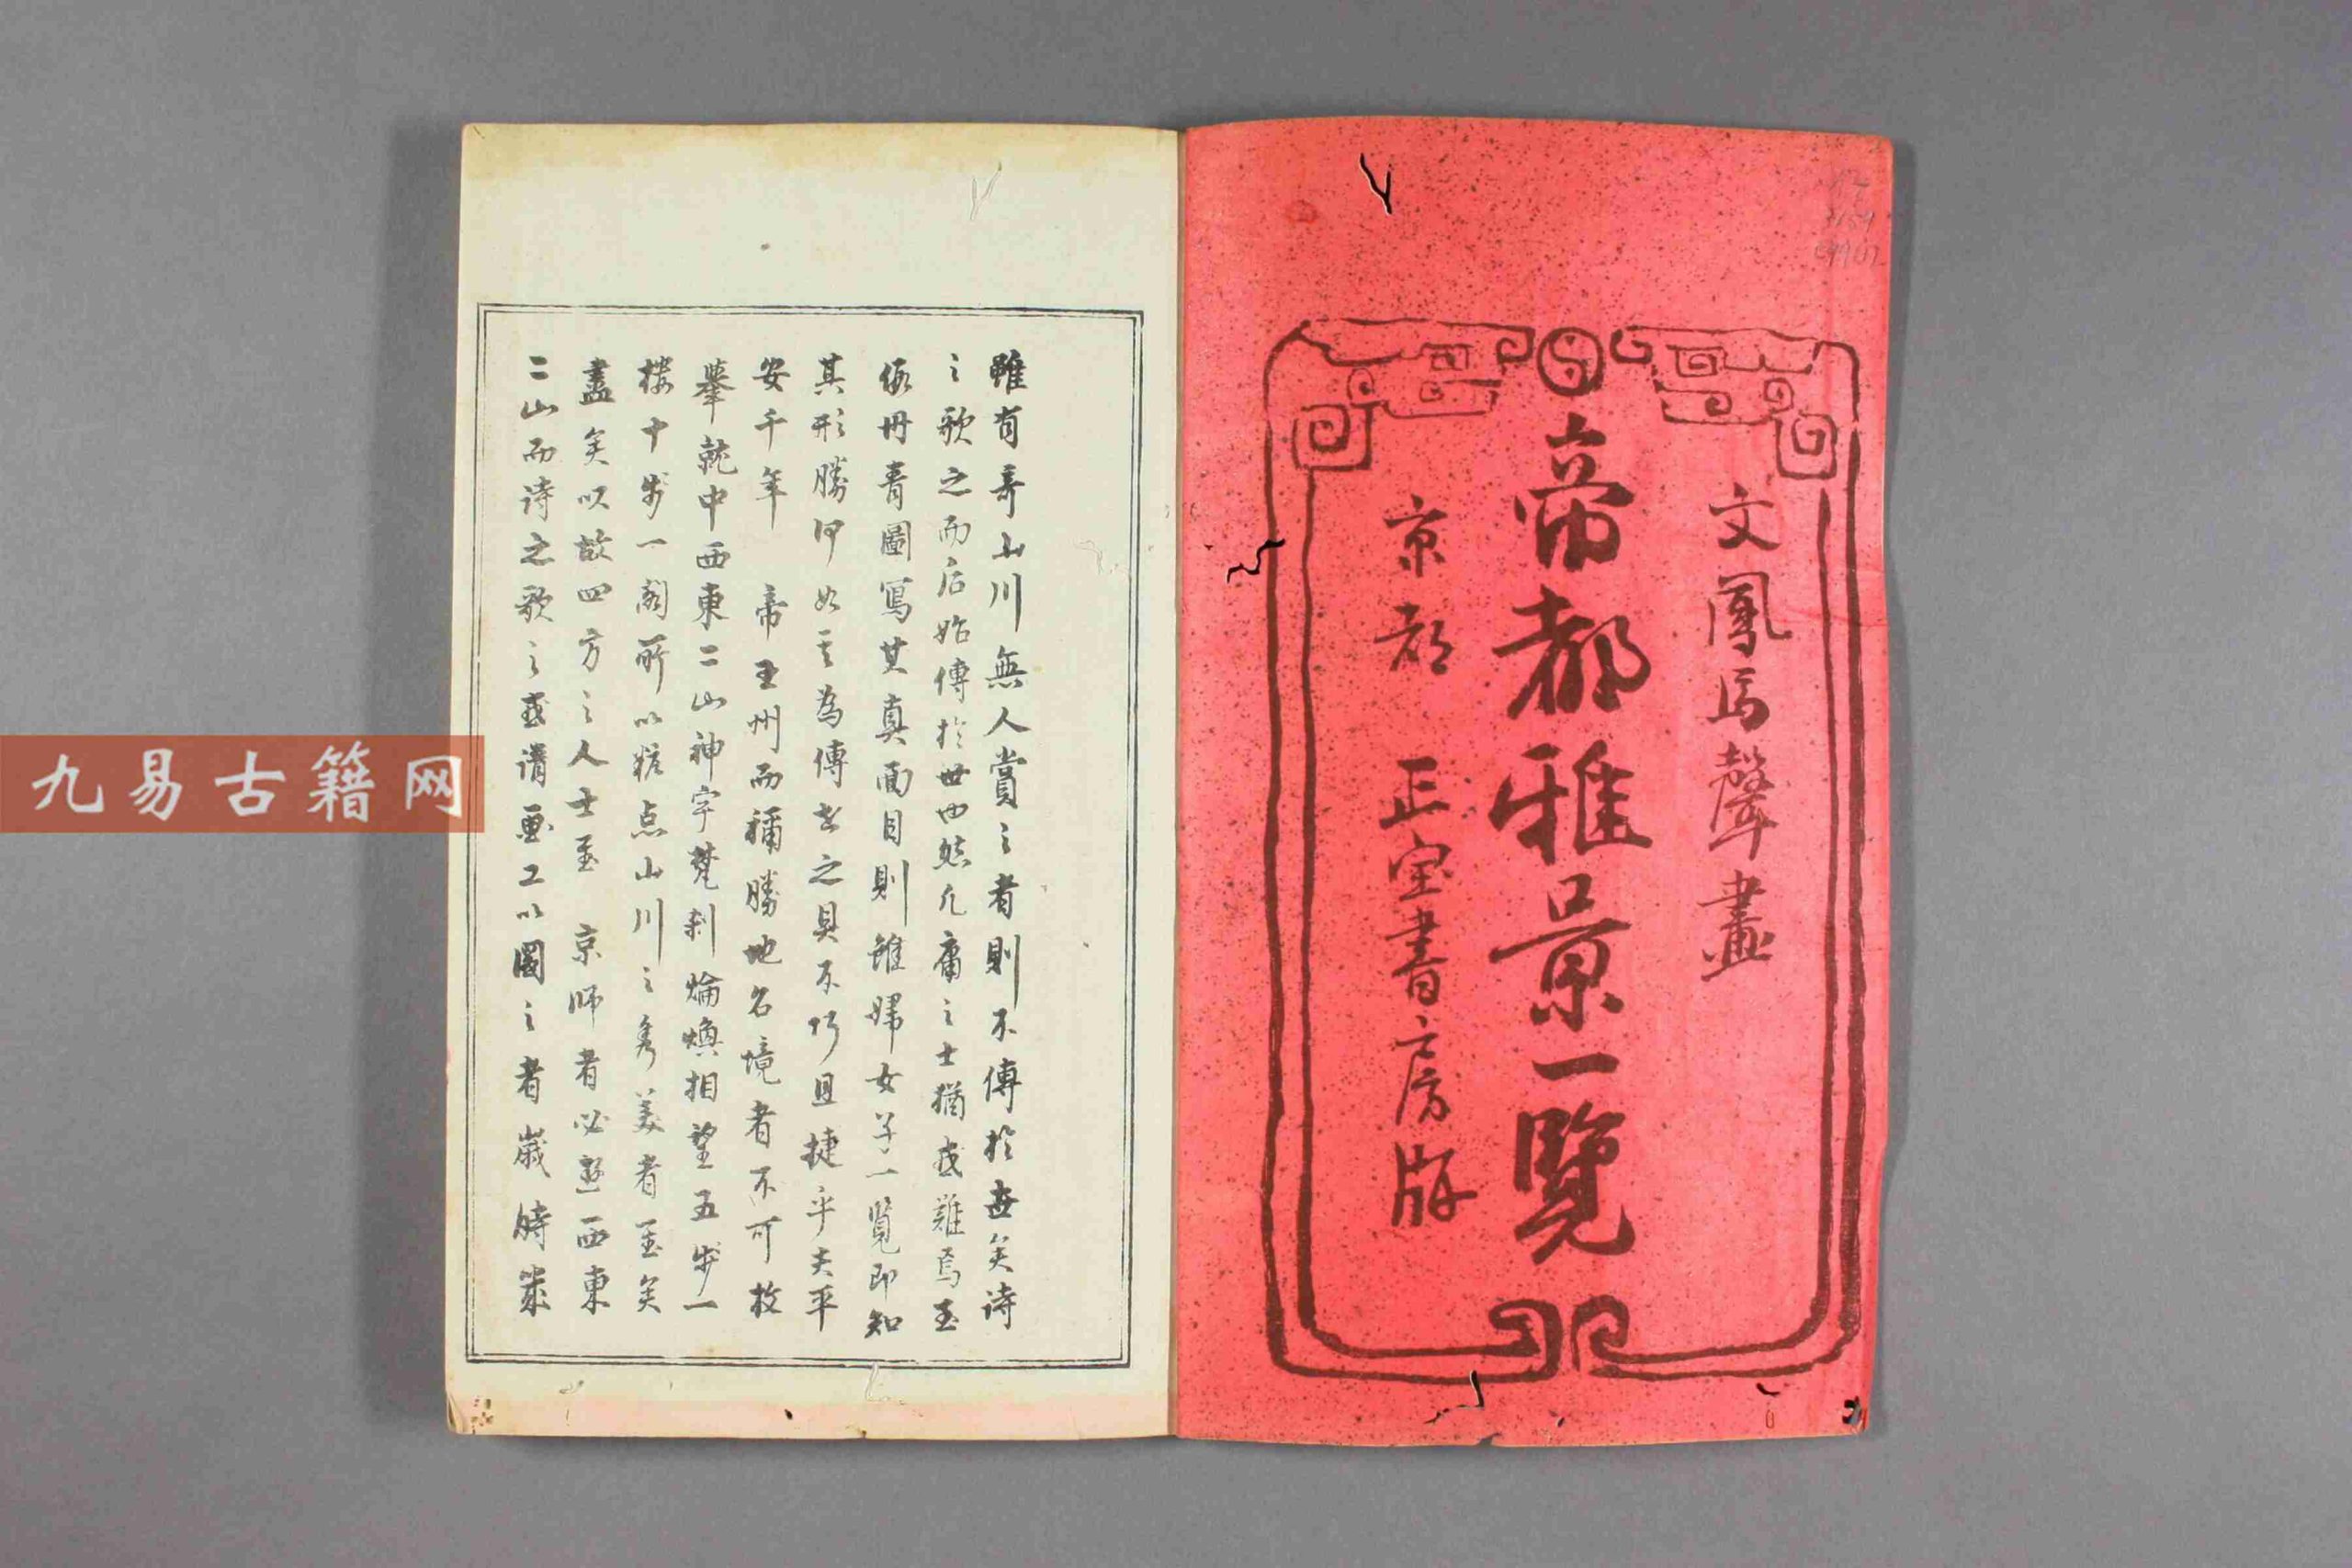 文鳳馬聲畫
帝都雅景一覽
京都 正宝書房版
雖有奇山川無人賞之者則不傳於世矣詩
之歌之而后始傳於世也然凡庸之士猶或難焉至
仮丹青圖寫其真面目則雖婦女子一覽即知
其形勝何如其為傳世之具不巧且捷乎夫平
安千年 帝王州而稱勝地名境者不可枚
擧就中西東二山神宇梵刹焔煥相望五步一
樓十步一閣所以粧点山川之秀美者至矣
盡矣以故四方之人士至 京師者必遊西東
二山而詩之歌之或請画工以圖之者歲時
九易古籍网